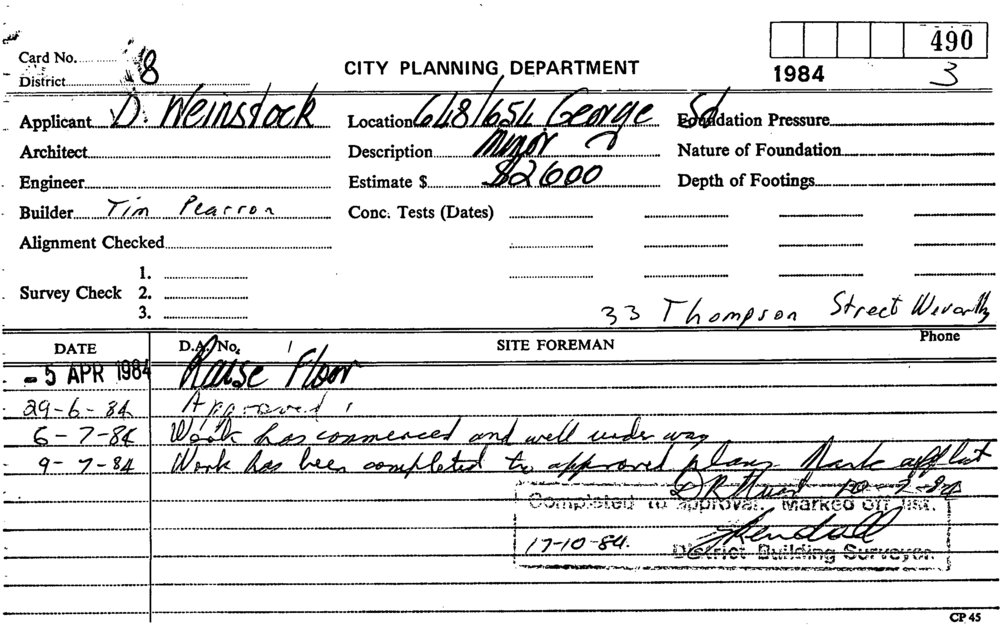 490
Card No. 8
District
CITY PLANNING DEPARTMENT
1984 3
Applicant D. Weinstock Location 648/654 George St Foundation Pressure
Architect Description Minor Nature of Foundation
Engineer Estimate $ $2600 Depth of Footings
Builder Tim Pearson Conc. Tests (Dates)
Alignment Checked
1.
Survey Check 2.
3.
33 Thompson Street Waverly
DATE D.A. No. SITE FOREMAN Phone
- 5 APR 1984 Raise Floor
29-6-84 Approved
6-7-84 Work has commenced and well under way
9-7-84 Work has been completed to approved plans. Mark off list
10-7-84
Completed to approval. Marked off list.
17-10-84.
District Building Surveyor.
CP 45